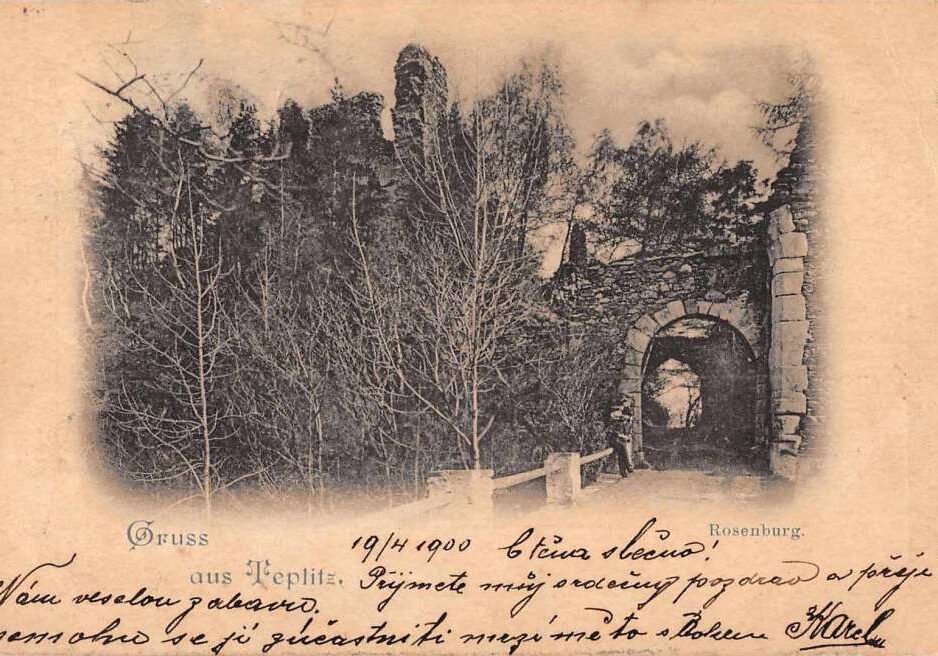 Gruss
aus Teplitz.
Rosenburg.
19/4 1900 Ctěná slečno!
Přijmete můj srdečný pozdrav a přeje
Vám veselou zábavu.
nemohu se jí zúčastniti mezí mě to s Bohem Karel